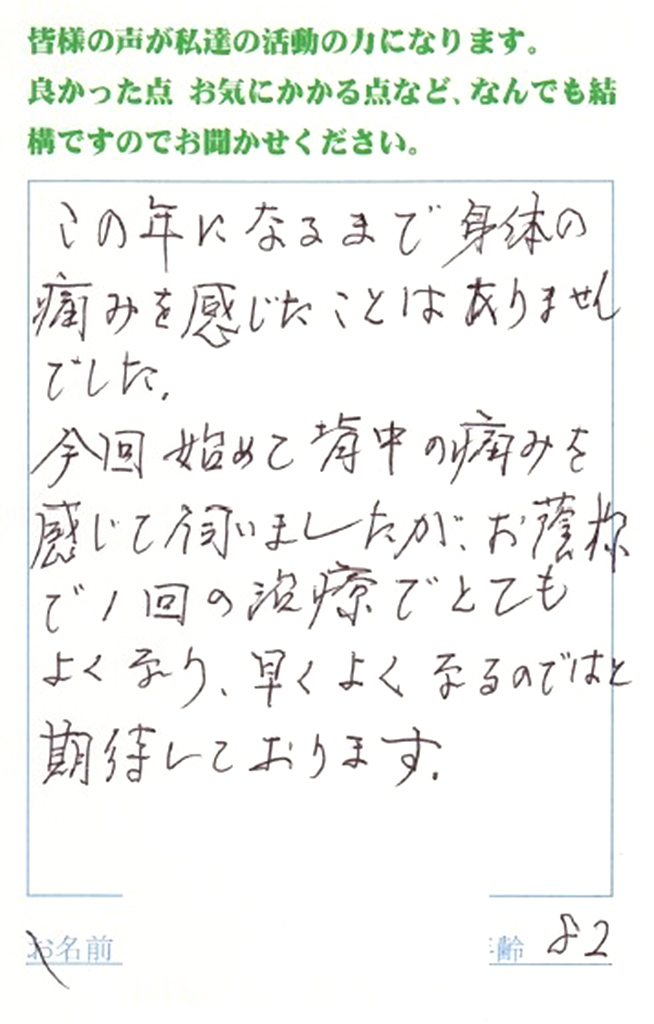 皆様の声が私達の活動の力になります。
良かった点 お気にかかる点など、なんでも結
構ですのでお聞かせください。
この年になるまで身体の
痛みを感じたことはありません
でした。
今回始めて背中の痛みを
感じて伺いましたが、お蔭様
で1回の治療でとても
よくなり、早くよくなるのではと
期待しております。
お名前
年齢 82